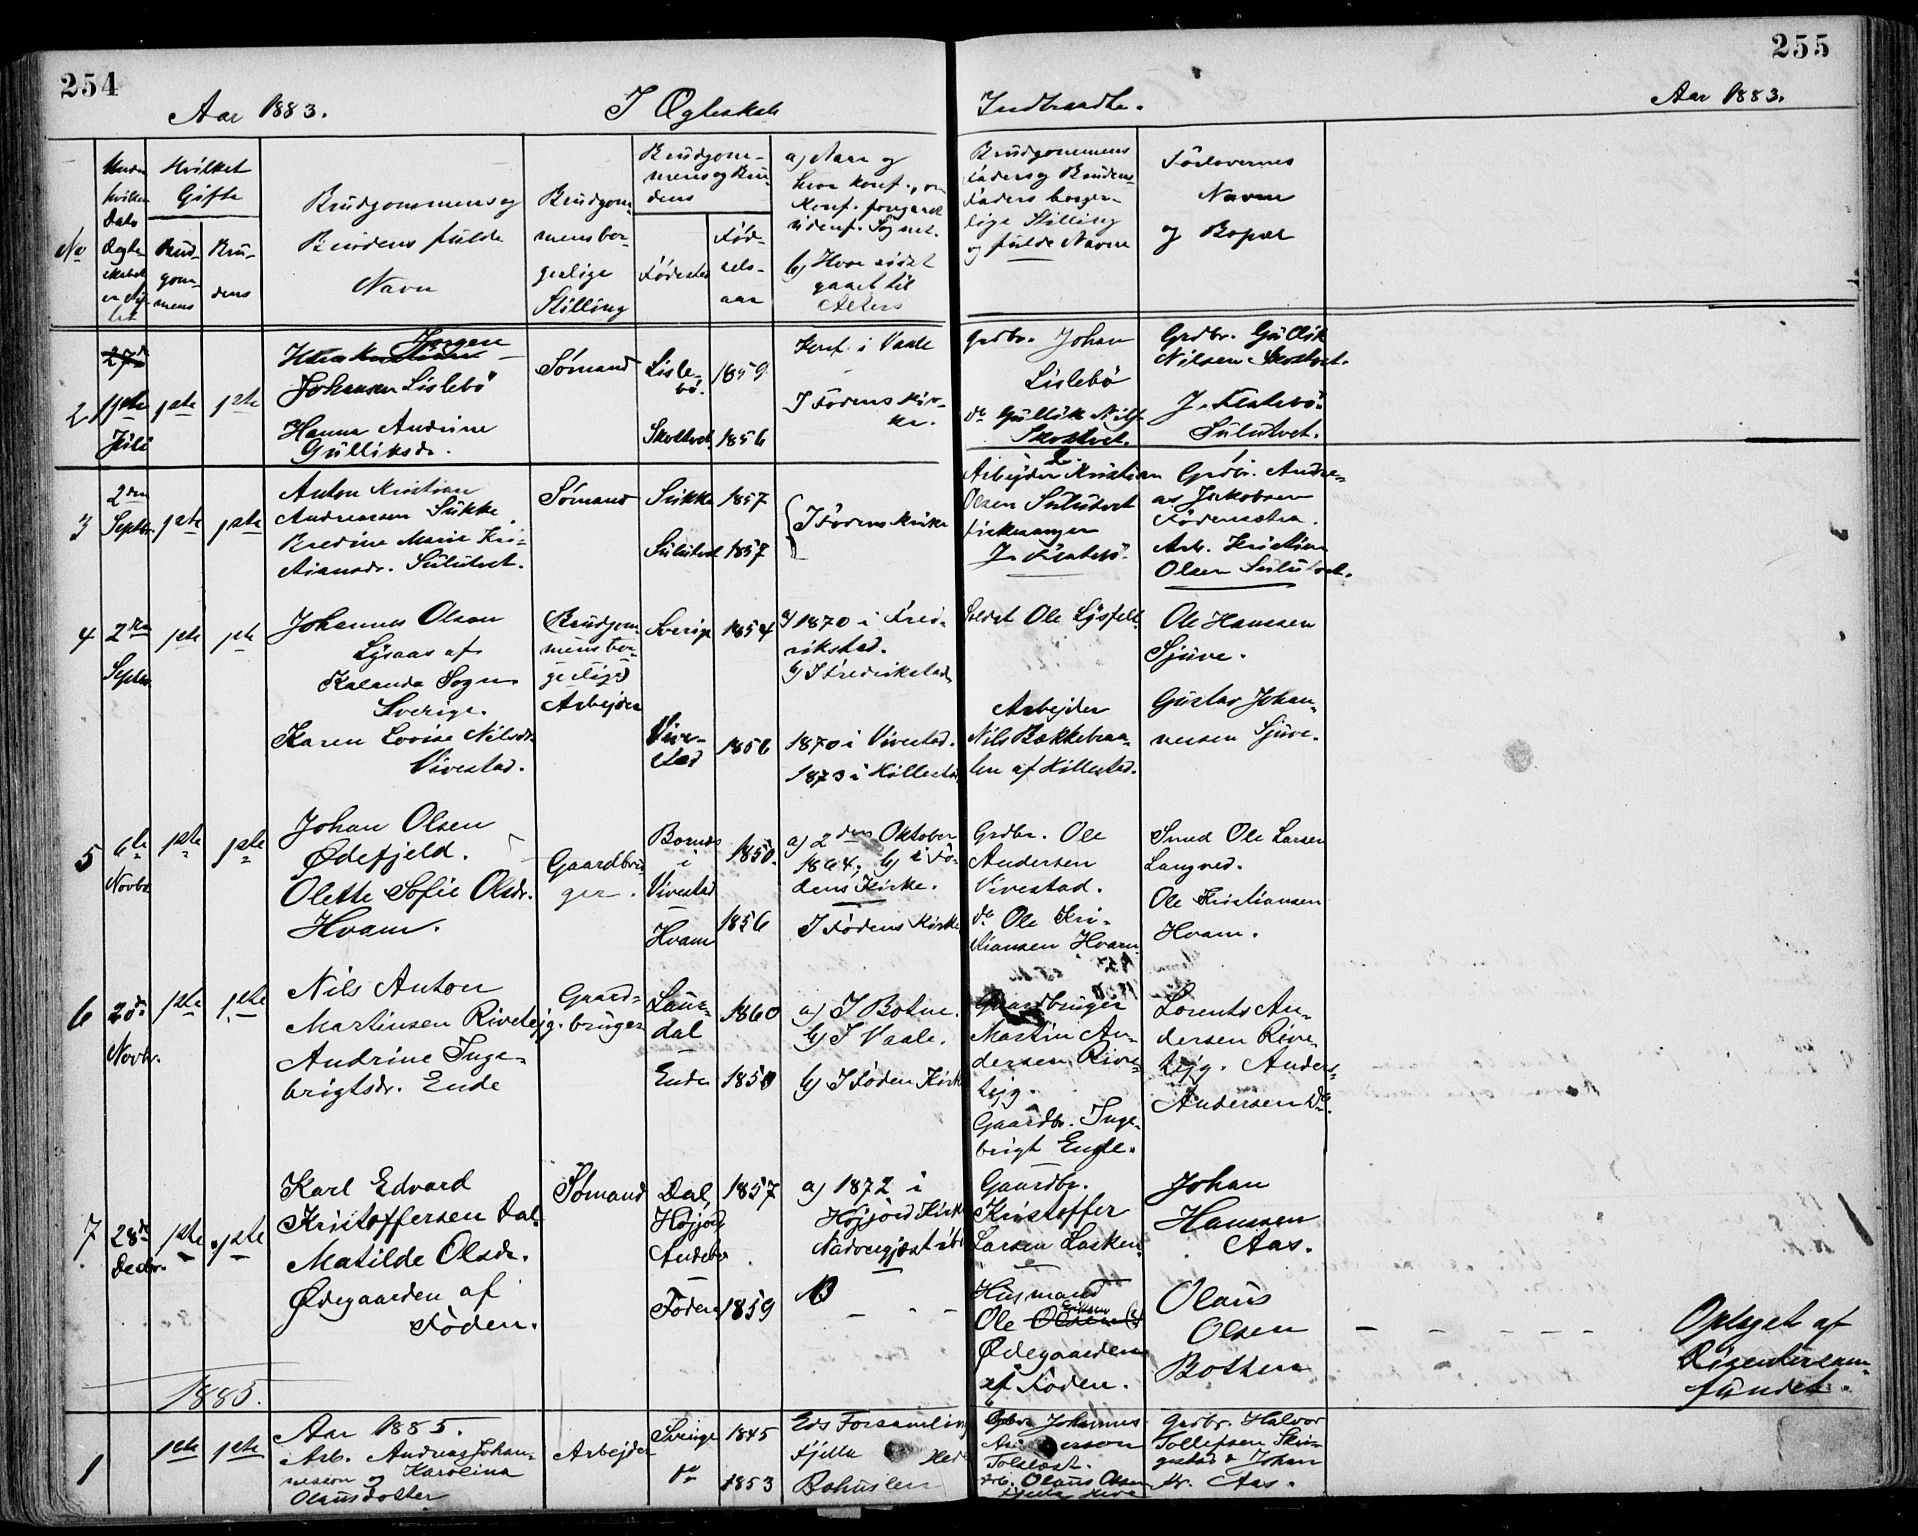 254
255
Aar 1883.
I Ægteskab
Indtraadte.
Aar 1883.
No
Under
hvilken
Dato
Hvilket
Gifte
Brud-
gom-
mens
Bru-
dens
Brudgommens og
Brudens fulde
Navn
Brudgom-
mens bor-
gerlige
Stilling
Brudgom-
mens og Bru-
dens
Fødested
Fød-
sels-
aar
a) Naar og
hvor konf., om
Konf. foregaaet
udenf. Sognet.
b) Hvor sidst
gaaet til
Alters
Brudgommens
Faders og Brudens
Faders borger-
lige Stilling
og fulde Navn
Forlovernes
Navn
og Bopæl
2
1ste
Juli
1ste
1ste
Jørgen
Johansen Lislebö
Hanna Andrine
Gulliksdr.
Sømand
Lisle-
bö.
Skottvet
1859
1856
Konf. i Vaale
I Fødens Kir-
ke.
Grdbr. Johan
Lislebö
do Gullik Nils.
Skottvet.
Grdbr. Gullik
Nilsen Skottvet.
J. Flatebö.
Sulutvet.
3
2den
Septbr.
1ste
1ste
Anton Kristian
Andreassen Sukke
Bredine Marie Kri-
stiansdr. Sulutvet.
Sømand
Sukke
Sulutvet
1857
1857
I Fødens Kirke
Arbejder Kristian
Olsen Sulutvet
J. Flatebö.
Grdbr. Andre-
as Jakobsen
Arb. Kristian
Olsen Sulutvet.
4
2den
Septbr.
1ste
1ste
Johannes Olsen
Lysaas af
Kalanda Sogn
Sverige.
Karen Lovise Nilsdr.
Vivestad.
Brudgom-
mens bor-
gerlige
Arbejder
Sverige
Vive-
stad
1854
1856
a) 1870 i Fred-
rikstad.
b) I Fredrikstad
1870 i Vivestad.
1873 i Hillestad
Soldat Ole Lysfelt.
Arbejder
Nils Bækkebraa-
ten af Hillestad.
Ole Hanssen
Sjuve.
Gustav Johan-
nessen Sjuve.
5
6te
Novbr.
1ste
1ste
Johan Olsen
Ødefjeld.
Olette Sofie Olsdr.
Hvam.
Gaardbru-
ger.
i
Vivestad
Hvam
1850.
1856
a) 2den Oktober
1864, b) i Fø-
dens Kirke.
I Fødens Kirke
Grdbr. Ole
Andersen
Vivestad.
do Ole Kri-
stiansen Hvam
Smed Ole Larsen
Langved.
Ole Kristiansen
Hvam.
6
2de
Novbr.
1ste
1ste
Nils Anton
Martinsen Rivetejg.
Andrine Inge-
brigtsdr. Ende
Gaard-
bruger
Laur-
dal
Ende
1860
1850
a) I Botne.
b) I Vaale.
b) I Føden Kirke
Gaardbruger
Martin An-
dersen Rive-
tejg.
Gaardbr. Inge-
brigt Ende.
Lorents An-
dersen Rive-
tejg. Anders
Andersen Do.
7
28de
Decbr.
1ste
1ste
Karl Edvard
Kristoffersen Dal.
Matilde Olsdr.
Ødegaarden af
Føden.
Sømand
Dal,
Høijord
Andebu
Føden
1857
1859
a) 1872 i
Høijord Kirke
Gaardbr.
Kristoffer
Larsen Lasken
Husmand
Ole Olsen
Ødegaarden
af Føden.
Johan
Hanssen
Aas.
Olaus
Olsen
Botten
Optaget af
Disentersam-
fundet.
1885.
Aar 1885.
1
1ste
1ste
Arb. Andreas Johan-
nesson og Karolina
Olausdotter
Arbejder
Sverige
do
1845
1853
Eds Forsamling
Fjella Hede
Bohuslen
Johannes
Olaus Olsen
Grdbr. Halvor
Tollefsen Skin-
gestad & Johan
Kr. Aas.